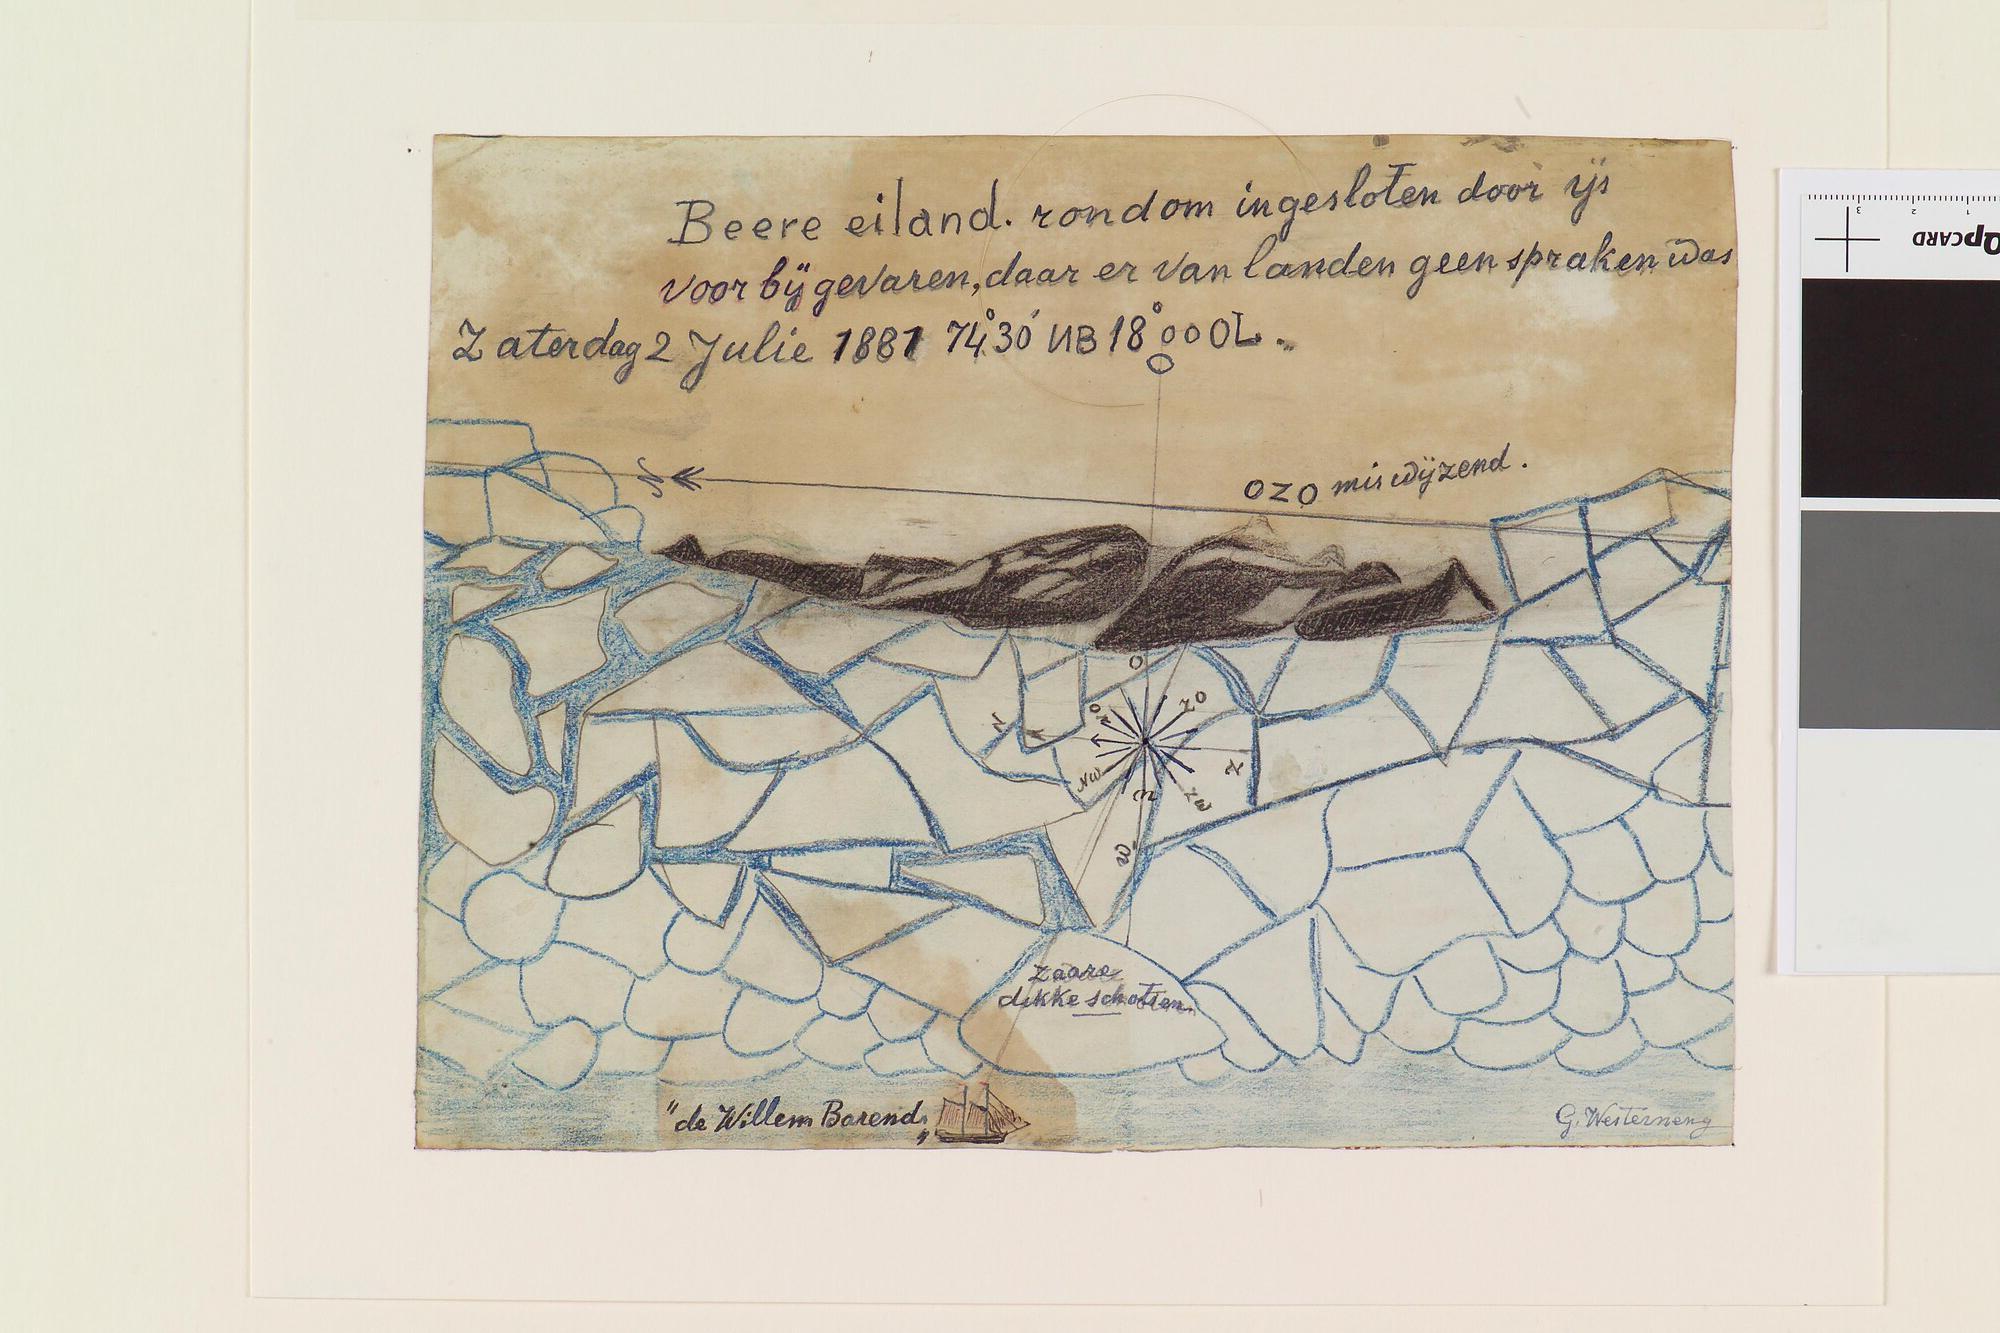 Beere eiland. rondom ingesloten door ijs
voorbij gevaren, daar er van landen geen spraken was
Zaterdag 2 Julie 1881 74°30' NB 18°00 OL.
O
N
OZO miswijzend.
O
ZO
ON
N
NW
Z
W
ZW
W
zware
dikke schotsen.
"de Willem Barends"
G. Westerneng
QPCARD
3 2 1